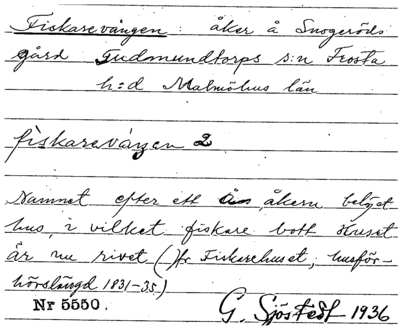 Fiskarevången: åker å Snogeröds
gård Gudmundtorps s:n Frosta
h:d Malmöhus län
fiskarevången 2
Namnet efter ett åkern beläget
hus, i vilket fiskare bott Huset
är nu rivet (Jfr Fiskarehuset, husför-
hörslängd 1831-35.)
Nr 5550.
G. Sjöstedt 1936